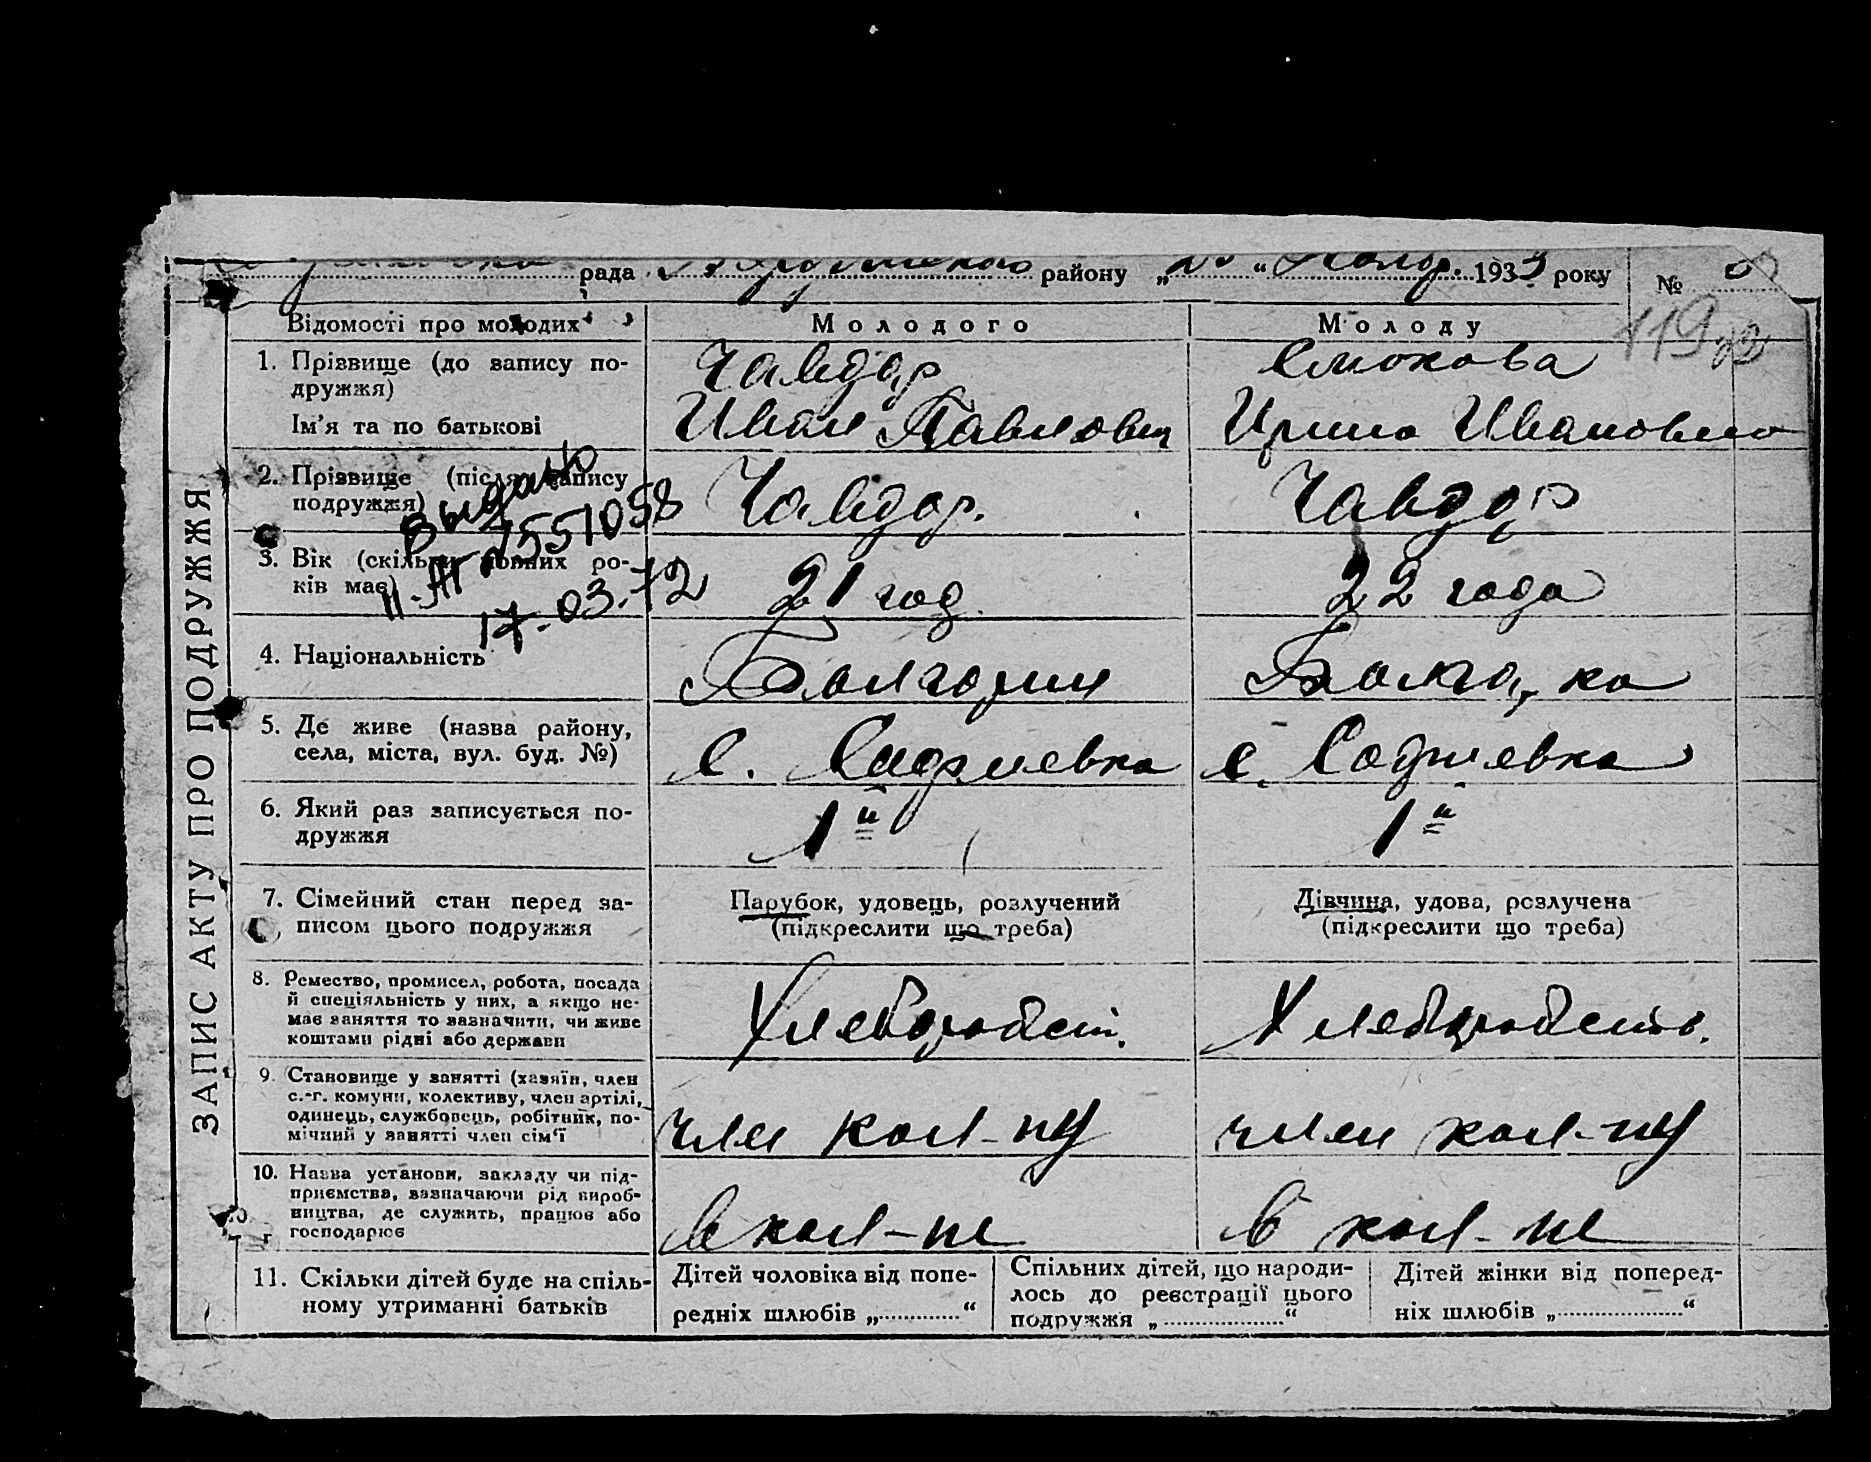 рада району „ “ 1933 року №
119
Відомості про молодих Молодого Молоду
1. Прізвище (до запису по-
дружжя) Чавдар Смокова
Ім'я та по батькові Иван Павлович Ирина Ивановна
2. Прізвище (після запису
подружжя) Чавдар. Чавдар
выдано
551058
17.03.72
3. Вік (скільки повних ро-
ків має) 21 год. 22 года
4. Національність Болгарин Болгарка
5. Де живе (назва району,
села, міста, вул. буд. №) с. Андриевка с. Андриевка
6. Який раз записується по-
дружжя 1й 1й
7. Сімейний стан перед за-
писом цього подружжя
Парубок, удовець, розлучений
(підкреслити що треба)
Дівчина, удова, розлучена
(підкреслити що треба)
8. Ремество, промисел, робота, посада
й спеціяльність у них, а якщо не-
має заняття то зазначити, чи живе
коштами рідні або держави
Хлеборобст. Хлеборобство.
9. Становище у занятті (хазяїн, член
с.-г. комуни, колективу, член артілі,
одинець, службовець, робітник, по-
мічний у занятті член сім'ї
член кол-ну член кол-ну
10. Назва установи, закладу чи під-
приємства, зазначаючи рід вироб-
ництва, де служить, працює або
господарює
в кол-не в кол-не
11. Скільки дітей буде на спіль-
ному утриманні батьків
Дітей чоловіка від попе-
редніх шлюбів „ “
Спільних дітей, що народи-
лось до реєстрації цього
подружжя „ “
Дітей жінки від поперед-
ніх шлюбів „ “
ЗАПИС АКТУ ПРО ПОДРУЖЖЯ